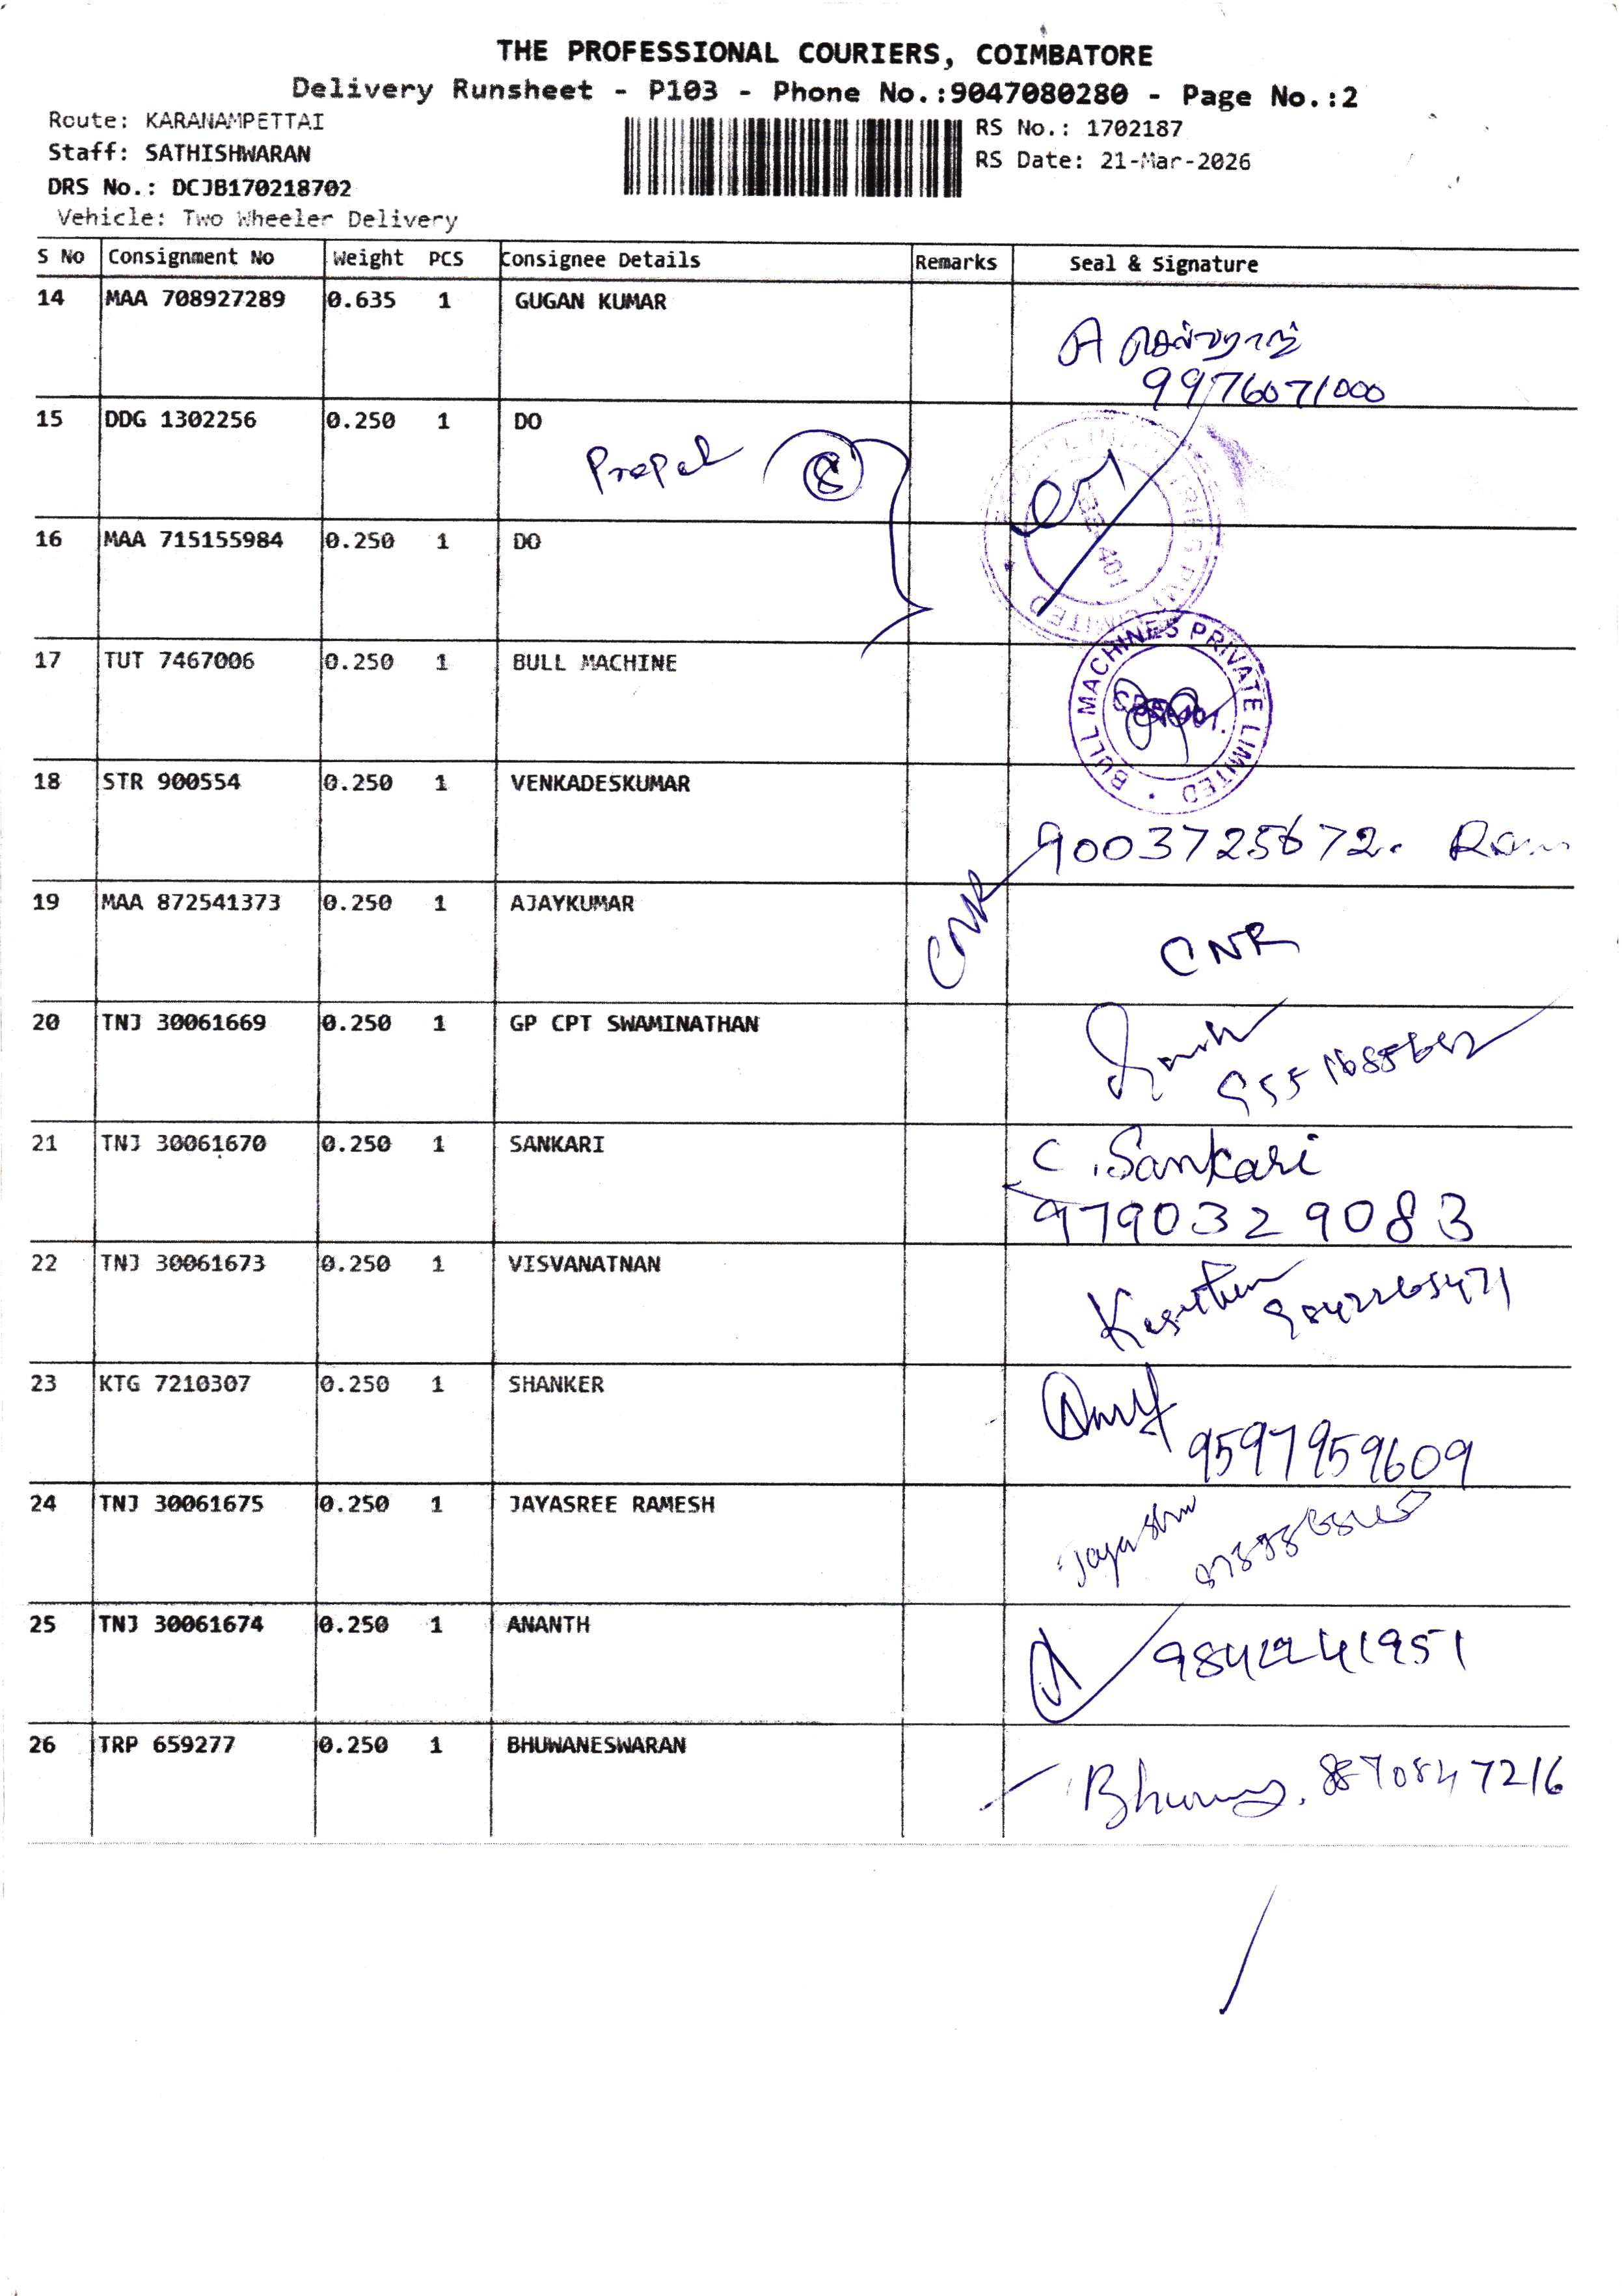 THE PROFESSIONAL COURIERS, COIMBATORE
Delivery Runsheet - P103 - Phone No.:9047080280 - Page No.:2
Route: KARANAMPETTAI
Staff: SATHISHWARAN
DRS No.: DCJB170218702
Vehicle: Two Wheeler Delivery
RS No.: 1702187
RS Date: 21-Mar-2026
S No Consignment No Weight PCS Consignee Details Remarks Seal & Signature
14 MAA 708927289 0.635 1 GUGAN KUMAR
A செல்வராஜ்
9976071000
15 DDG 1302256 0.250 1 DO
Propel 8
16 MAA 715155984 0.250 1 DO
401
17 TUT 7467006 0.250 1 BULL MACHINE
BULL MACHINES PRIVATE LIMITED
18 STR 900554 0.250 1 VENKADESKUMAR
9003725672. Ram
19 MAA 872541373 0.250 1 AJAYKUMAR CNR CNR
20 TNJ 30061669 0.250 1 GP CPT SWAMINATHAN
21 TNJ 30061670 0.250 1 SANKARI
C. Sankari
9790329083
22 TNJ 30061673 0.250 1 VISVANATNAN
23 KTG 7210307 0.250 1 SHANKER
9597959609
24 TNJ 30061675 0.250 1 JAYASREE RAMESH
25 TNJ 30061674 0.250 1 ANANTH
26 TRP 659277 0.250 1 BHUWANESWARAN